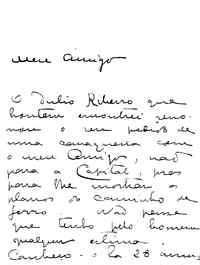 Meu Amigo
O Julio Ribeiro que
hontem encontrei
o seu pedido de
uma conversa com
o meu Amigo, não
para a Capital, mas
para lhe mostrar os
planos do caminho de
ferro. Não pense
que tenho pelo homem
qualquer estima.
Conheço-o ha 28 annos